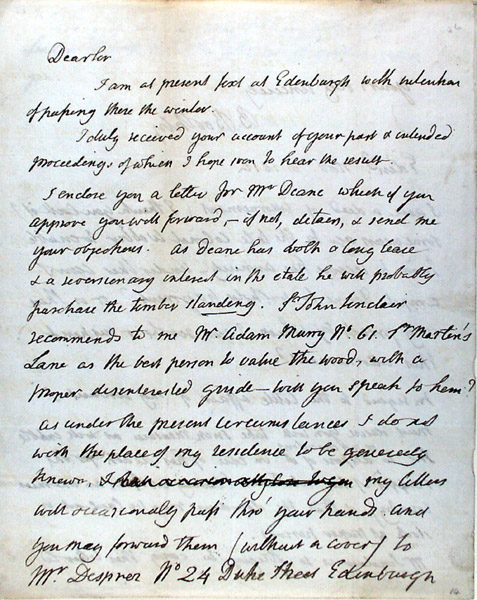 Dear Sir
I am at present fixt at Edenburgh with intention
of passing there the winter.
I duly received your account of your past & intended
proceedings of which I hope soon to hear the result.
I enclose you a letter for Mr Deane which if you
approve you will forward, – if not, detain, & send me
your objections. as Deane has both a long lease
& a reversionary interest in the etale he will probably
purchase the timber standing. Sr John Sinclair
recommends to me Mr. Adam Murry No. 61. St Martin's
Lane as the best person to value the wood, with a
proper disinterested guide – will you speak to him?
as under the present circumstances I do not
wish the place of my residence to be generally
known, & my letters
will occasionally pass thro' your hands and
you may forward them (without a cover) to
Mr Despner No 24 Duke Street Edenburgh